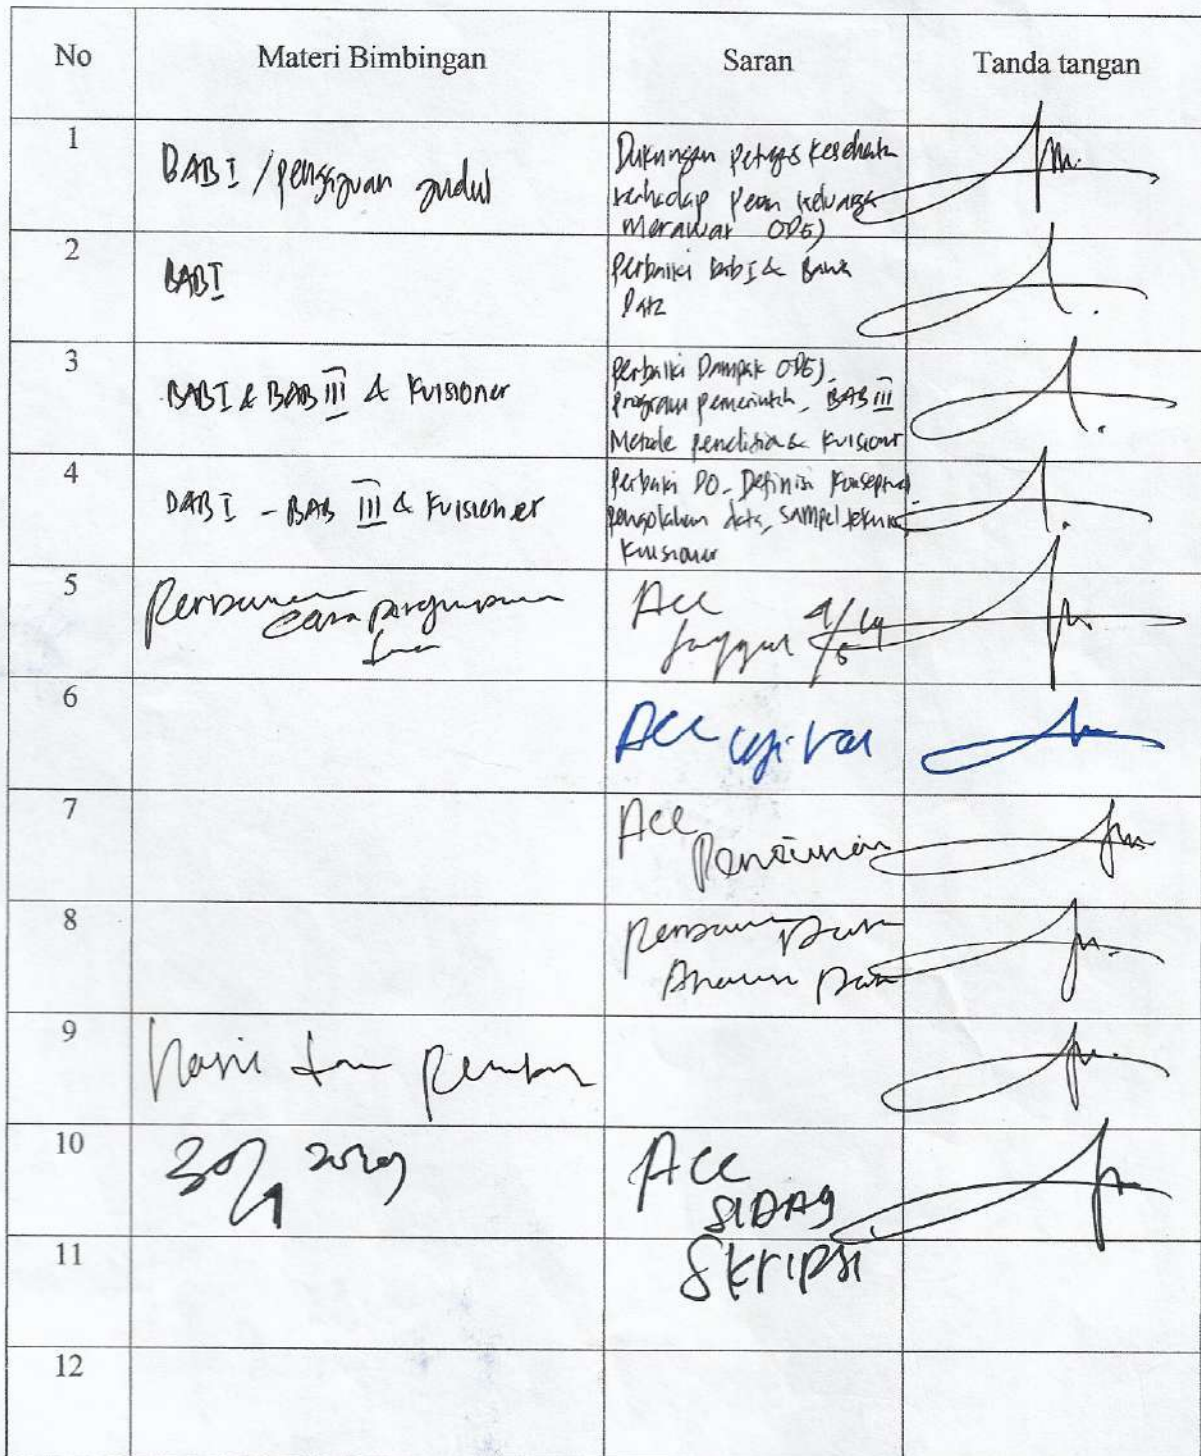 No Materi Bimbingan Saran Tanda tangan
1 BAB I / pengajuan judul Dukungan petugas kesehatan
terhadap peran keluarga
merawat ODGJ
2 BAB I Perbaiki bab I & Bawa
Data
3 BAB I & BAB III & Kuisioner Perbaiki Dampak ODGJ,
program pemerintah, BAB III
Metode penelitian & kuisioner
4 BAB I - BAB III & Kuisioner Perbaiki DO, Definisi Konseptual
pengolahan data, sampel teknik
Kuisioner
5 cara Acc
6 Acc uji
7 Acc
Penelitian
8 Data
Analisis Data
9 Hasil dan
10 30/1 Acc
SIDAG
SKRIPSI
11
12